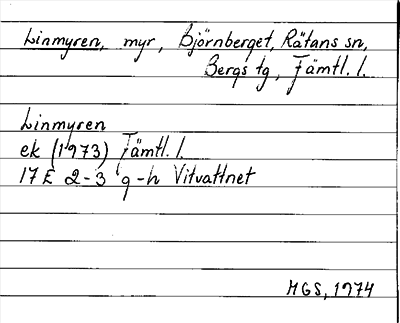 Linmyren, myr, Björnberget, Rätans sn,
Bergs tg, Jämtl. l.
Linmyren
ek (1973) Jämtl. l.
17E 2-3 g-h Vitvattnet
MGS, 1974